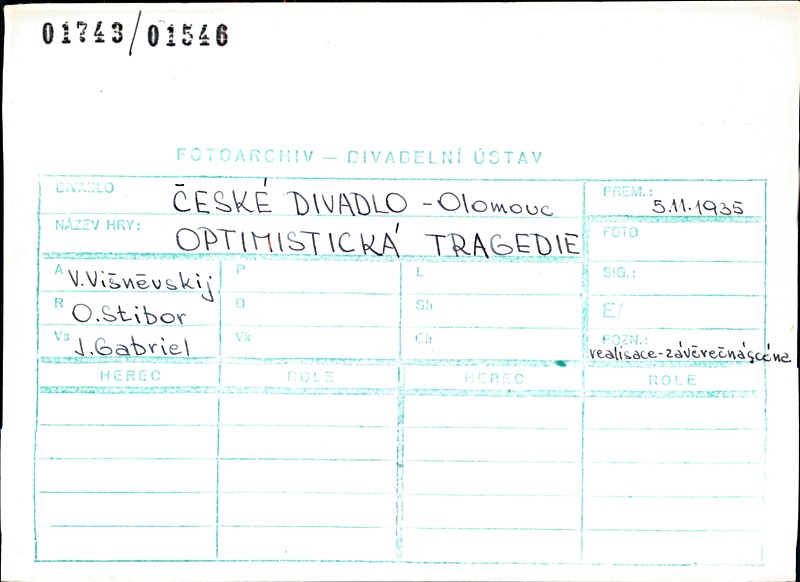 01743/01546
FOTOARCHIV — DIVADELNÍ ÚSTAV
DIVADLO ČESKÉ DIVADLO - Olomouc PREM.: 5.11.1935
NÁZEV HRY: OPTIMISTICKÁ TRAGEDIE FOTO
A V.Višněvskij P L SIG.:
R O.Stibor O Sh E/
Vs J.Gabriel Vk Ch POZN.: realisace-závěrečná scéna
HEREC ROLE HEREC ROLE